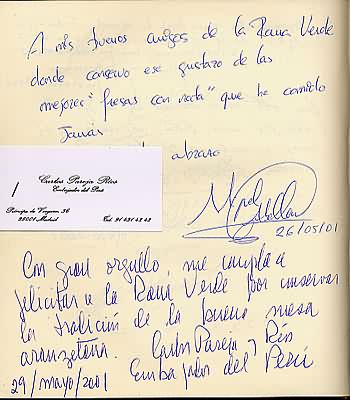 A mis buenos amigos de la Rana Verde
donde conservo ese gustazo de las
mejores "fresas con nata" que he comido
Jamás
abrazo
26/05/01
Carlos Pareja Ríos
Embajador del Perú
Príncipe de Vergara 36
28001 Madrid
Tel. 91 431 42 42
Con gran orgullo, me cumple
felicitar a la Rana Verde por conservar
la tradición de la buena mesa
aranzetana. Carlos Pareja y Ríos
29/mayo/2001 Embajador del Perú